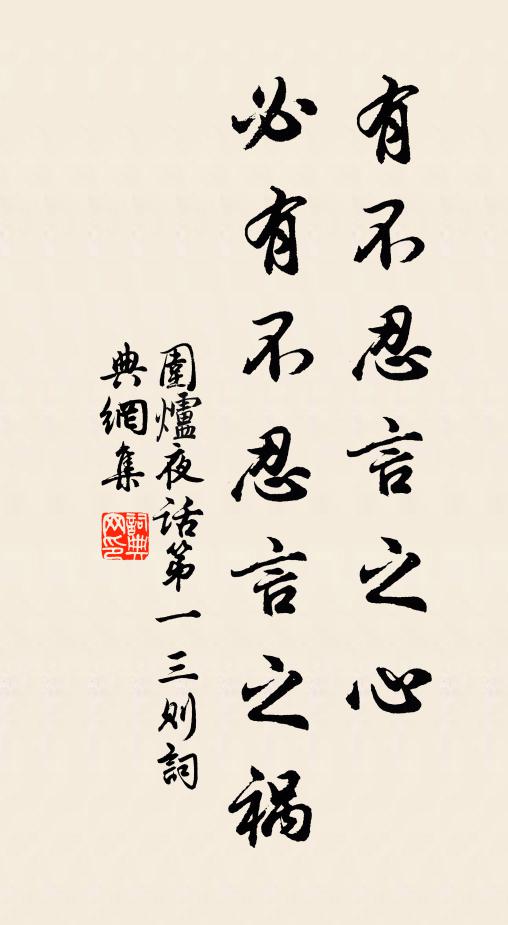 有不忍言之心
必有不忍言之祸
圍爐夜话第一三则詞
典網集
詞典网印